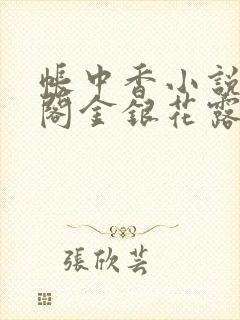 帳中香小說
閣金銀花露
張欣芸